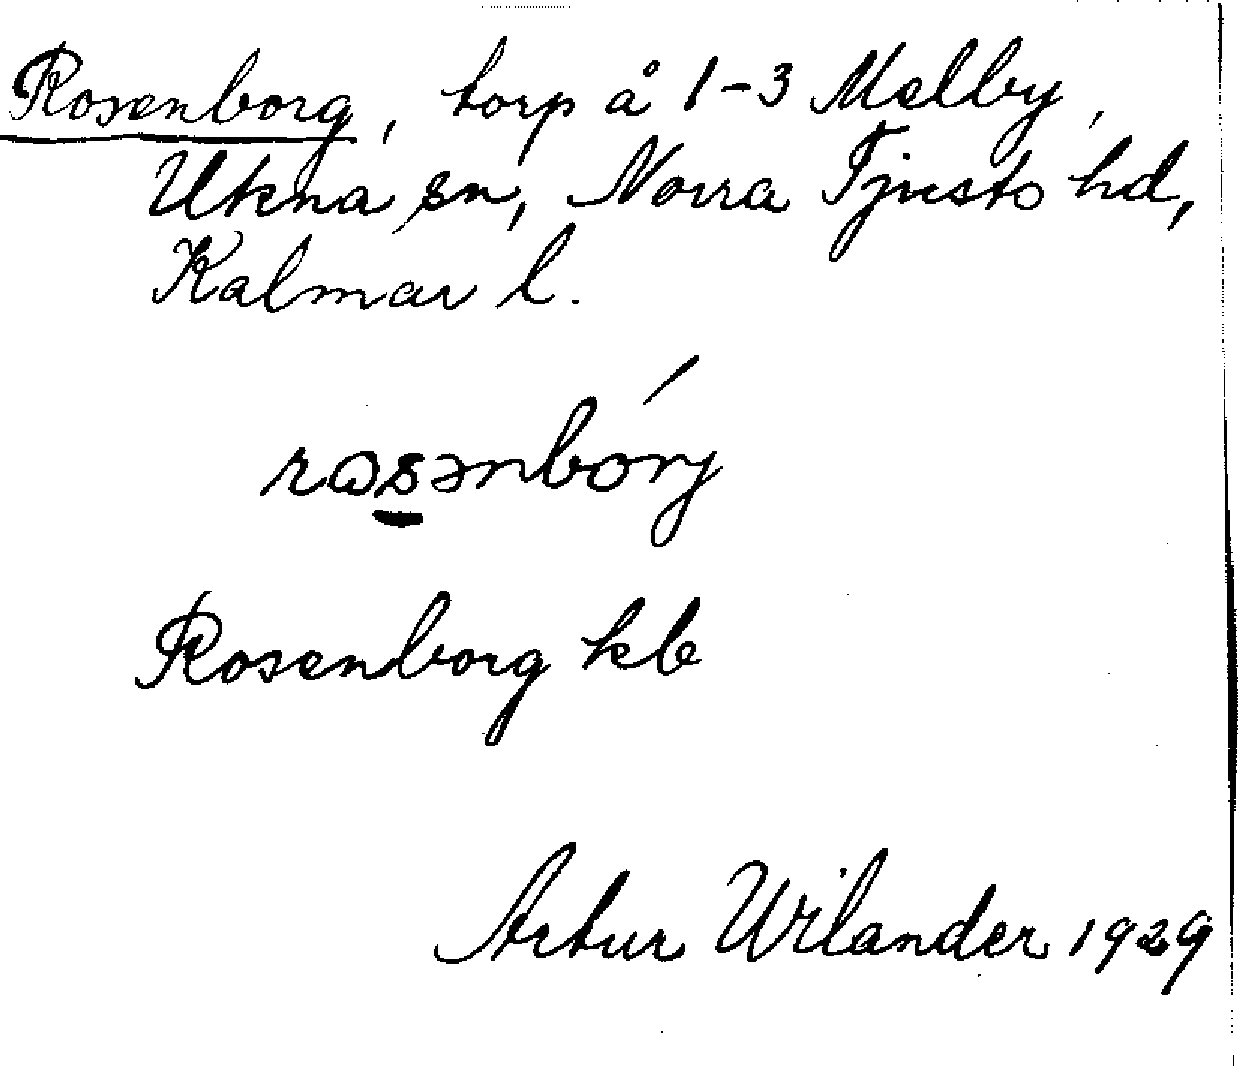 Rosenborg, torp å 1-3 Melby,
Ukna sn, Norra Tjusts hd,
Kalmar l.
rωsənbórj
Rosenborg kb
Artur Wilander 1929